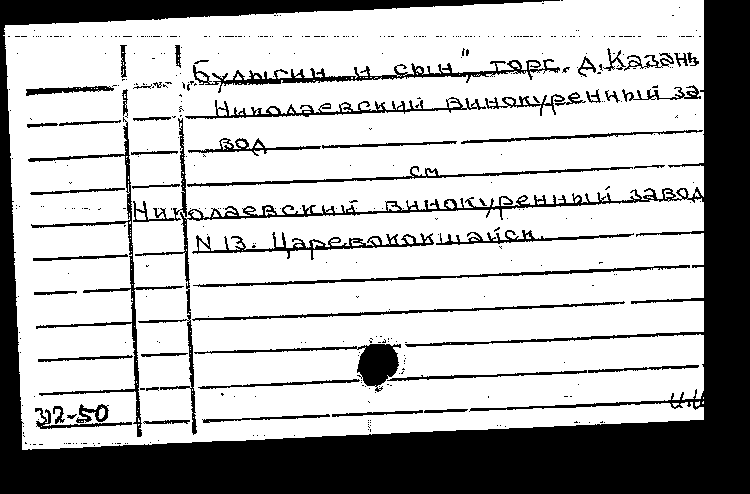 „Булыгин и сын", торг. д. Казань
Николаевский винокуренный за-
вод
см
Николаевский винокуренный завод
N 13. Царевококшайск.
312-50